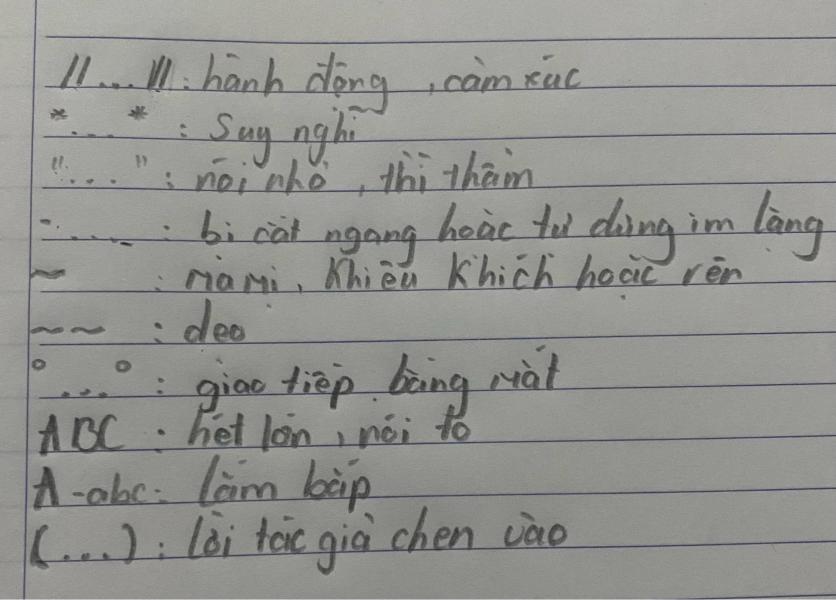 //...///: hành động, cảm xúc
*...* : Suy nghĩ
"..." : nói nhỏ, thì thầm
-...- : bị cắt ngang hoặc tự dừng im lặng
~ : mờ mị, khiêu khích hoặc rên
~~ : dẹo
°...° : giao tiếp bằng mắt
ABC : hét lớn, nói to
A-abc: lắm bắp
(...) : lời tác giả chen vào